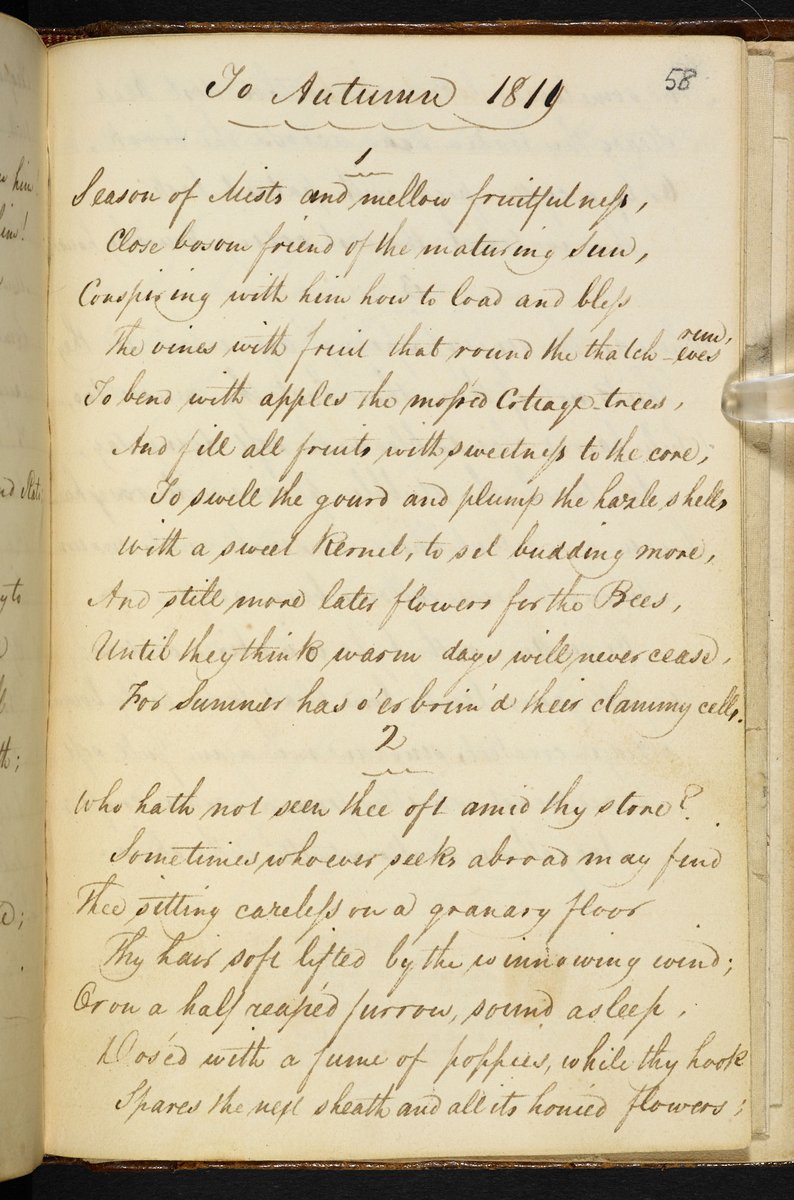 58
To Autumn 1819
1
Season of Mists and mellow fruitfulness,
Close bosom friend of the maturing Sun,
Conspiring with him how to load and bless
The vines with fruit that round the thatch-eves run,
To bend with apples the moss'd Cottage-trees,
And fill all fruits with sweetness to the core,
To swell the gourd and plump the hazle shells
With a sweet kernel, to set budding more,
And still more later flowers for the Bees,
Until they think warm days will never cease,
For Summer has o'erbrim'd their clammy cells.
2
Who hath not seen thee oft amid thy store?
Sometimes whoever seeks abroad may find
Thee sitting careless on a granary floor
Thy hair soft lifted by the winnowing wind;
Or on a half reap'd furrow, sound asleep,
Dos'ed with a fume of poppies, while thy hook
Spares the next sheath and all its honied flowers;
him!
him!
nd
y to
th;